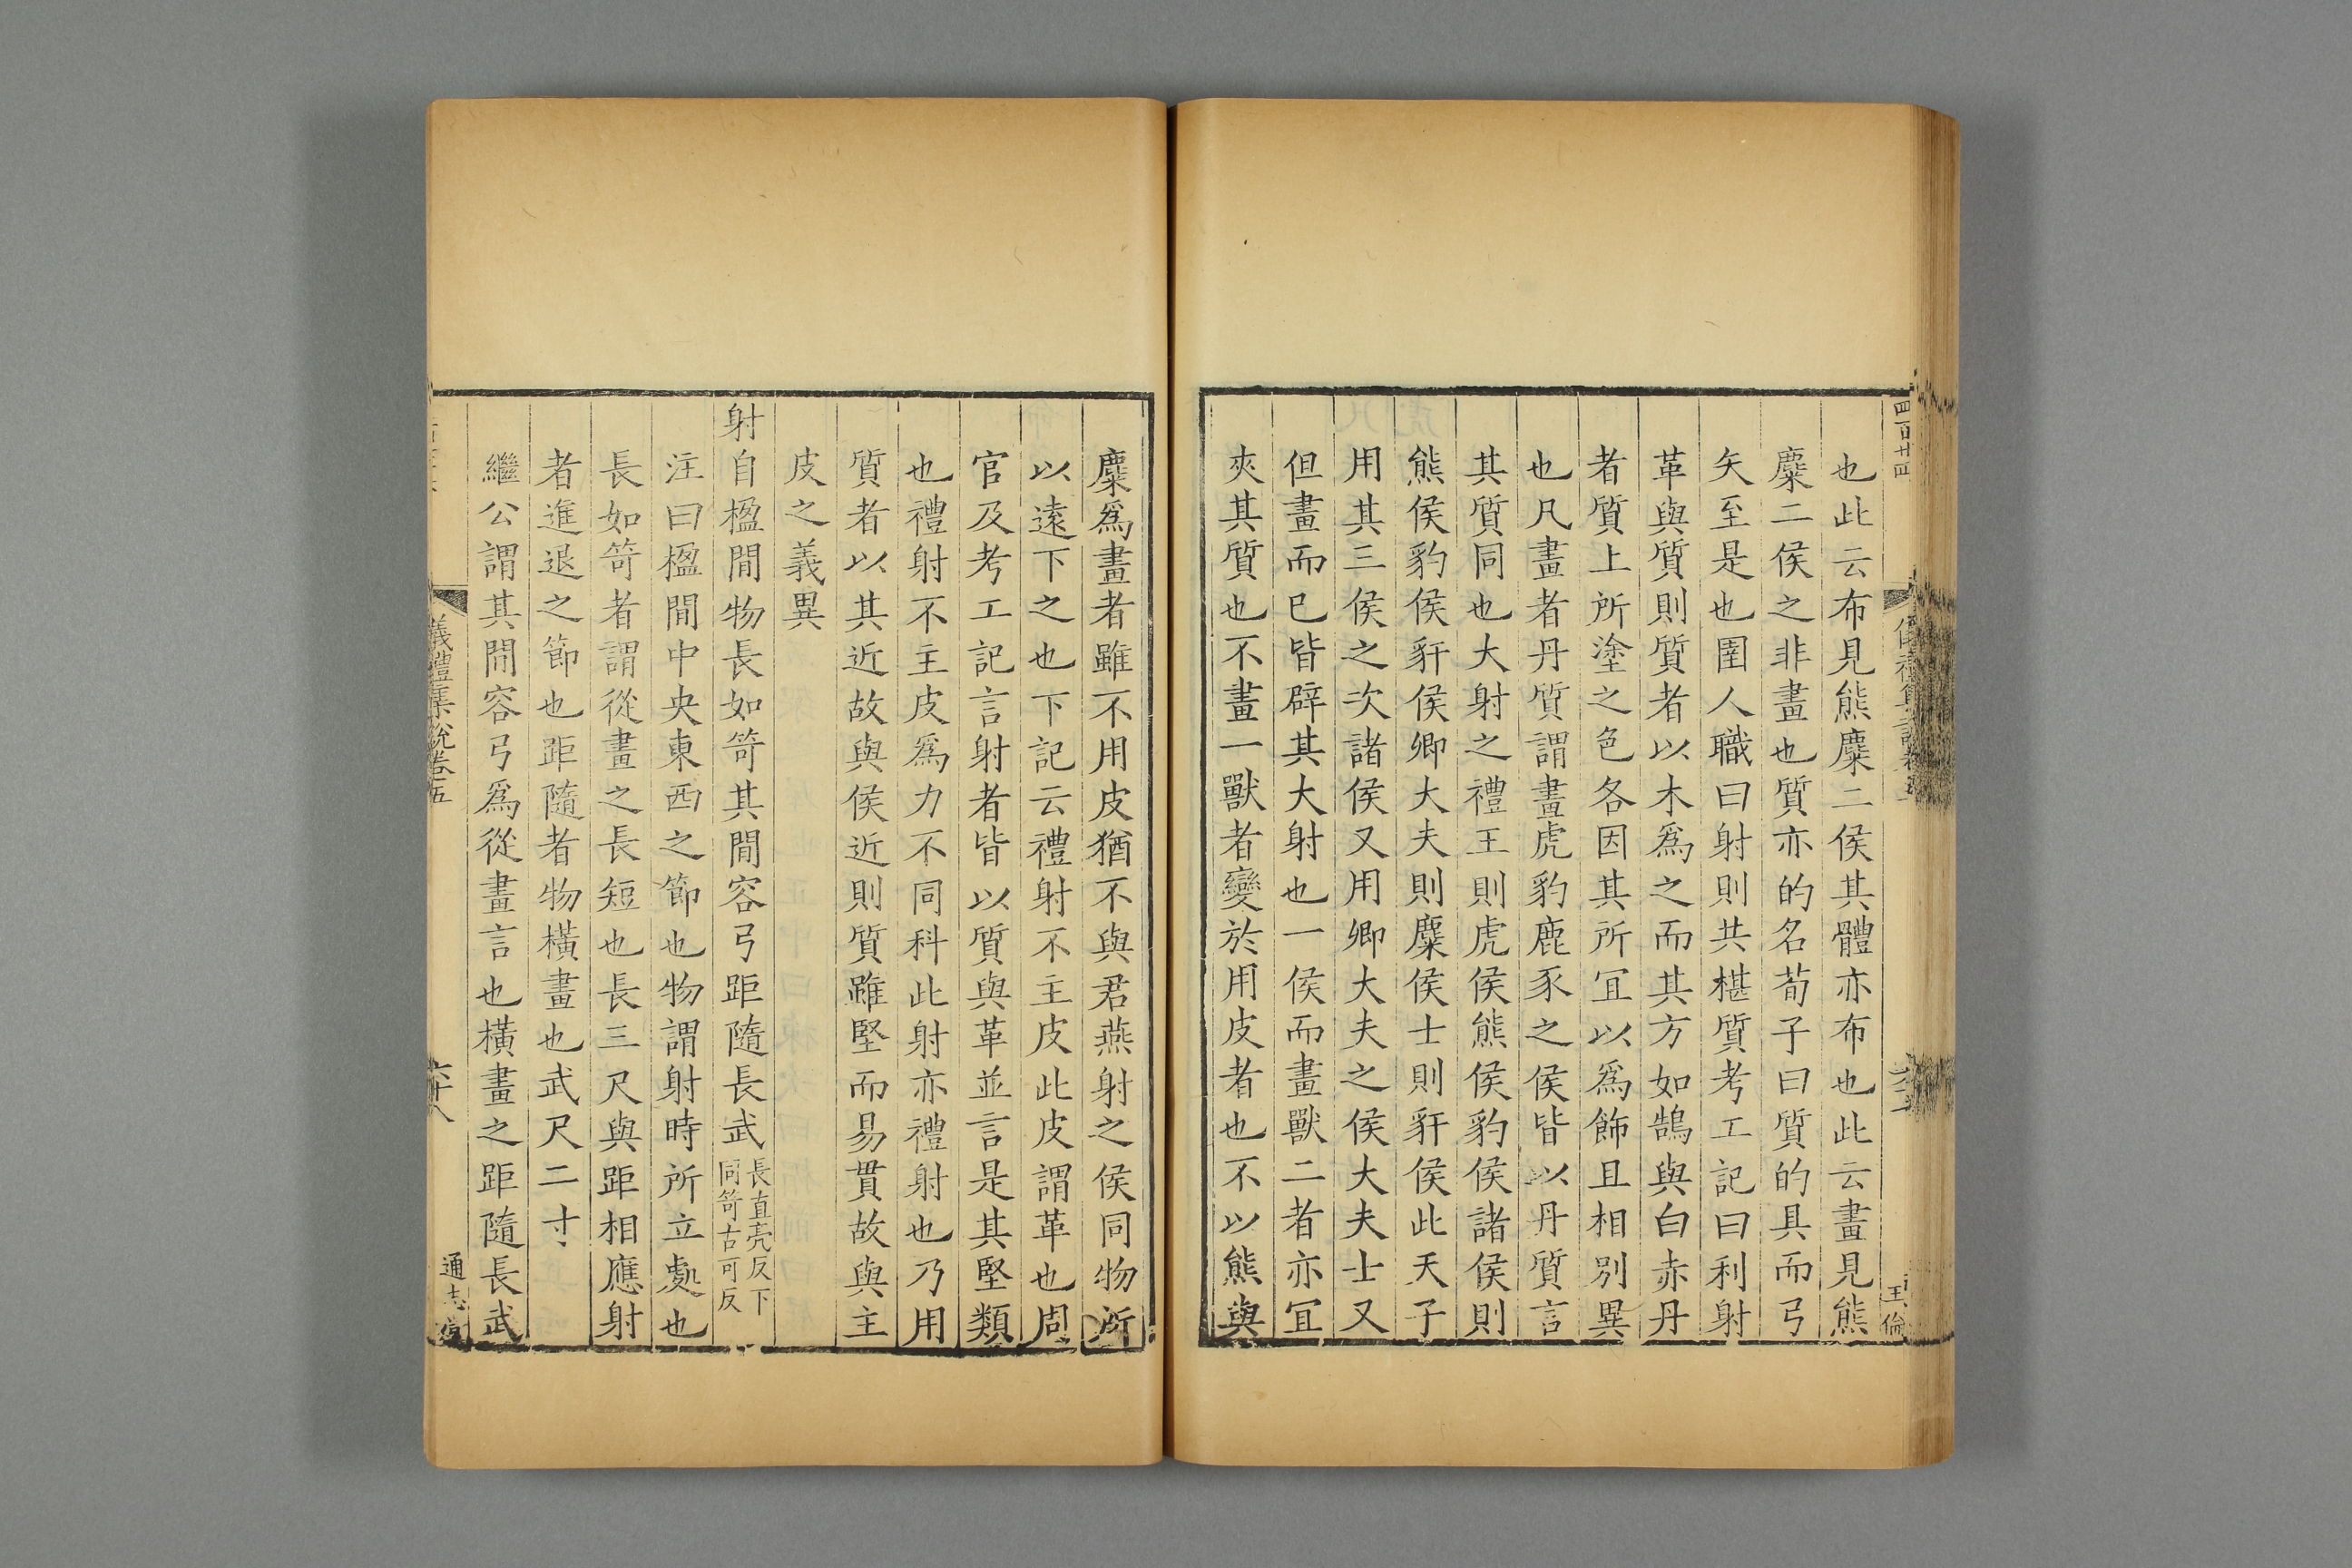 四百十四
也此云布見熊麋二侯其體亦布也此云畫見熊
麋二侯之非畫也質亦的名荀子曰質的具而弓
矢至是也圉人職曰射則共椹質考工記曰利射
革與質則質者以木爲之而其方如鵠與白赤丹
者質上所塗之色各因其所宜以爲飾且相別異
也凡畫者丹質謂畫虎豹鹿豕之侯皆以丹質言
其質同也大射之禮王則虎侯熊侯豹侯諸侯則
熊侯豹侯豻侯卿大夫則麋侯士則豻侯此天子
用其三侯之次諸侯又用卿大夫之侯大夫士又
但畫而已皆辟其大射也一侯而畫獸二者亦宜
夾其質也不畫一獸者變於用皮者也不以熊與
王倫
麋爲畫者雖不用皮猶不與君燕射之侯同物所
以遠下之也下記云禮射不主皮此皮謂革也周
官及考工記言射者皆以質與革並言是其堅類
也禮射不主皮爲力不同科此射亦禮射也乃用
質者以其近故與侯近則質雖堅而易貫故與主
皮之義異
射自楹閒物長如笴其閒容弓距隨長武長直亮反下同笴古可反
注曰楹閒中央東西之節也物謂射時所立處也
長如笴者謂從畫之長短也長三尺與距相應射
者進退之節也距隨者物橫畫也武尺二寸
繼公謂其閒容弓爲從畫言也橫畫之距隨長武
儀禮集說卷五
六十八
通志堂